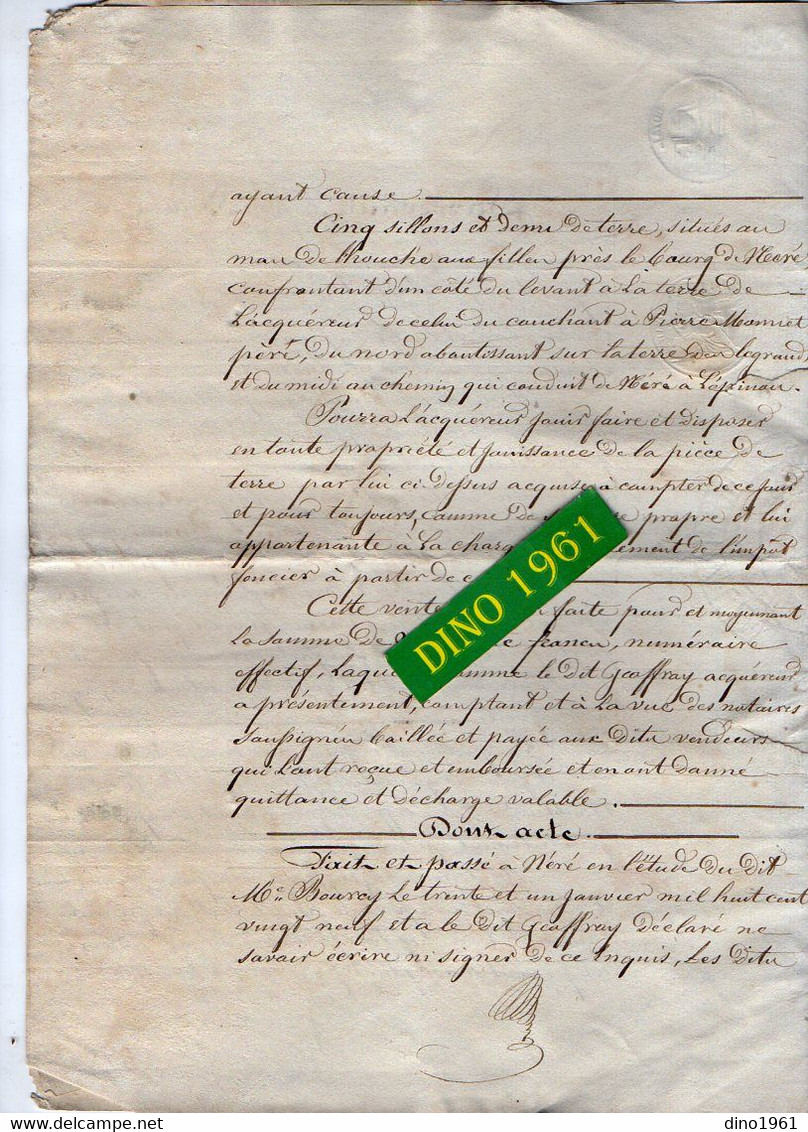 ayant cause.
Cinq sillons et demi de terre, situés au
mas de houche aux filles près le bourg de Néré
confrontant d'un côté du levant à la terre de
l'acquéreur de celui du couchant à Pierre
père, du nord aboutissant sur la terre legrand,
et du midi au chemin qui conduit de Néré à Lépinou.
Pourra l'acquéreur jouir faire et disposer
en toute propriété et jouissance de la pièce de
terre par lui ci dessus acquise à compter de ce jour
et pour toujours, comme de propre et lui
appartenante à la charge de l'impot
foncier à partir de
Cette vente faite pour et moyennant
la somme de francs, numéraire
effectif, laquelle somme le dit Geoffray acquéreur
a présentement, comptant et à la vue des notaires
soussignés baillée et payée aux dits vendeurs
qui l'ont reçue et emboursée et en ont donné
quittance et décharge valable.
Dont acte.
Fait et passé à Néré en l'étude du dit
Me. Bourcy le trente et un janvier mil huit cent
vingt neuf et a le dit Geoffray déclaré ne
savoir écrire ni signer de ce inquis, Les dits
DINO 1961
dino1961